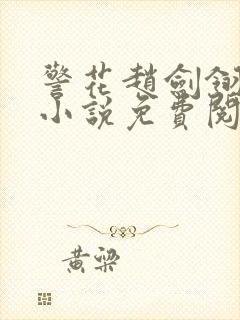 警花趙劍鋒
小說免費閱
黃梁